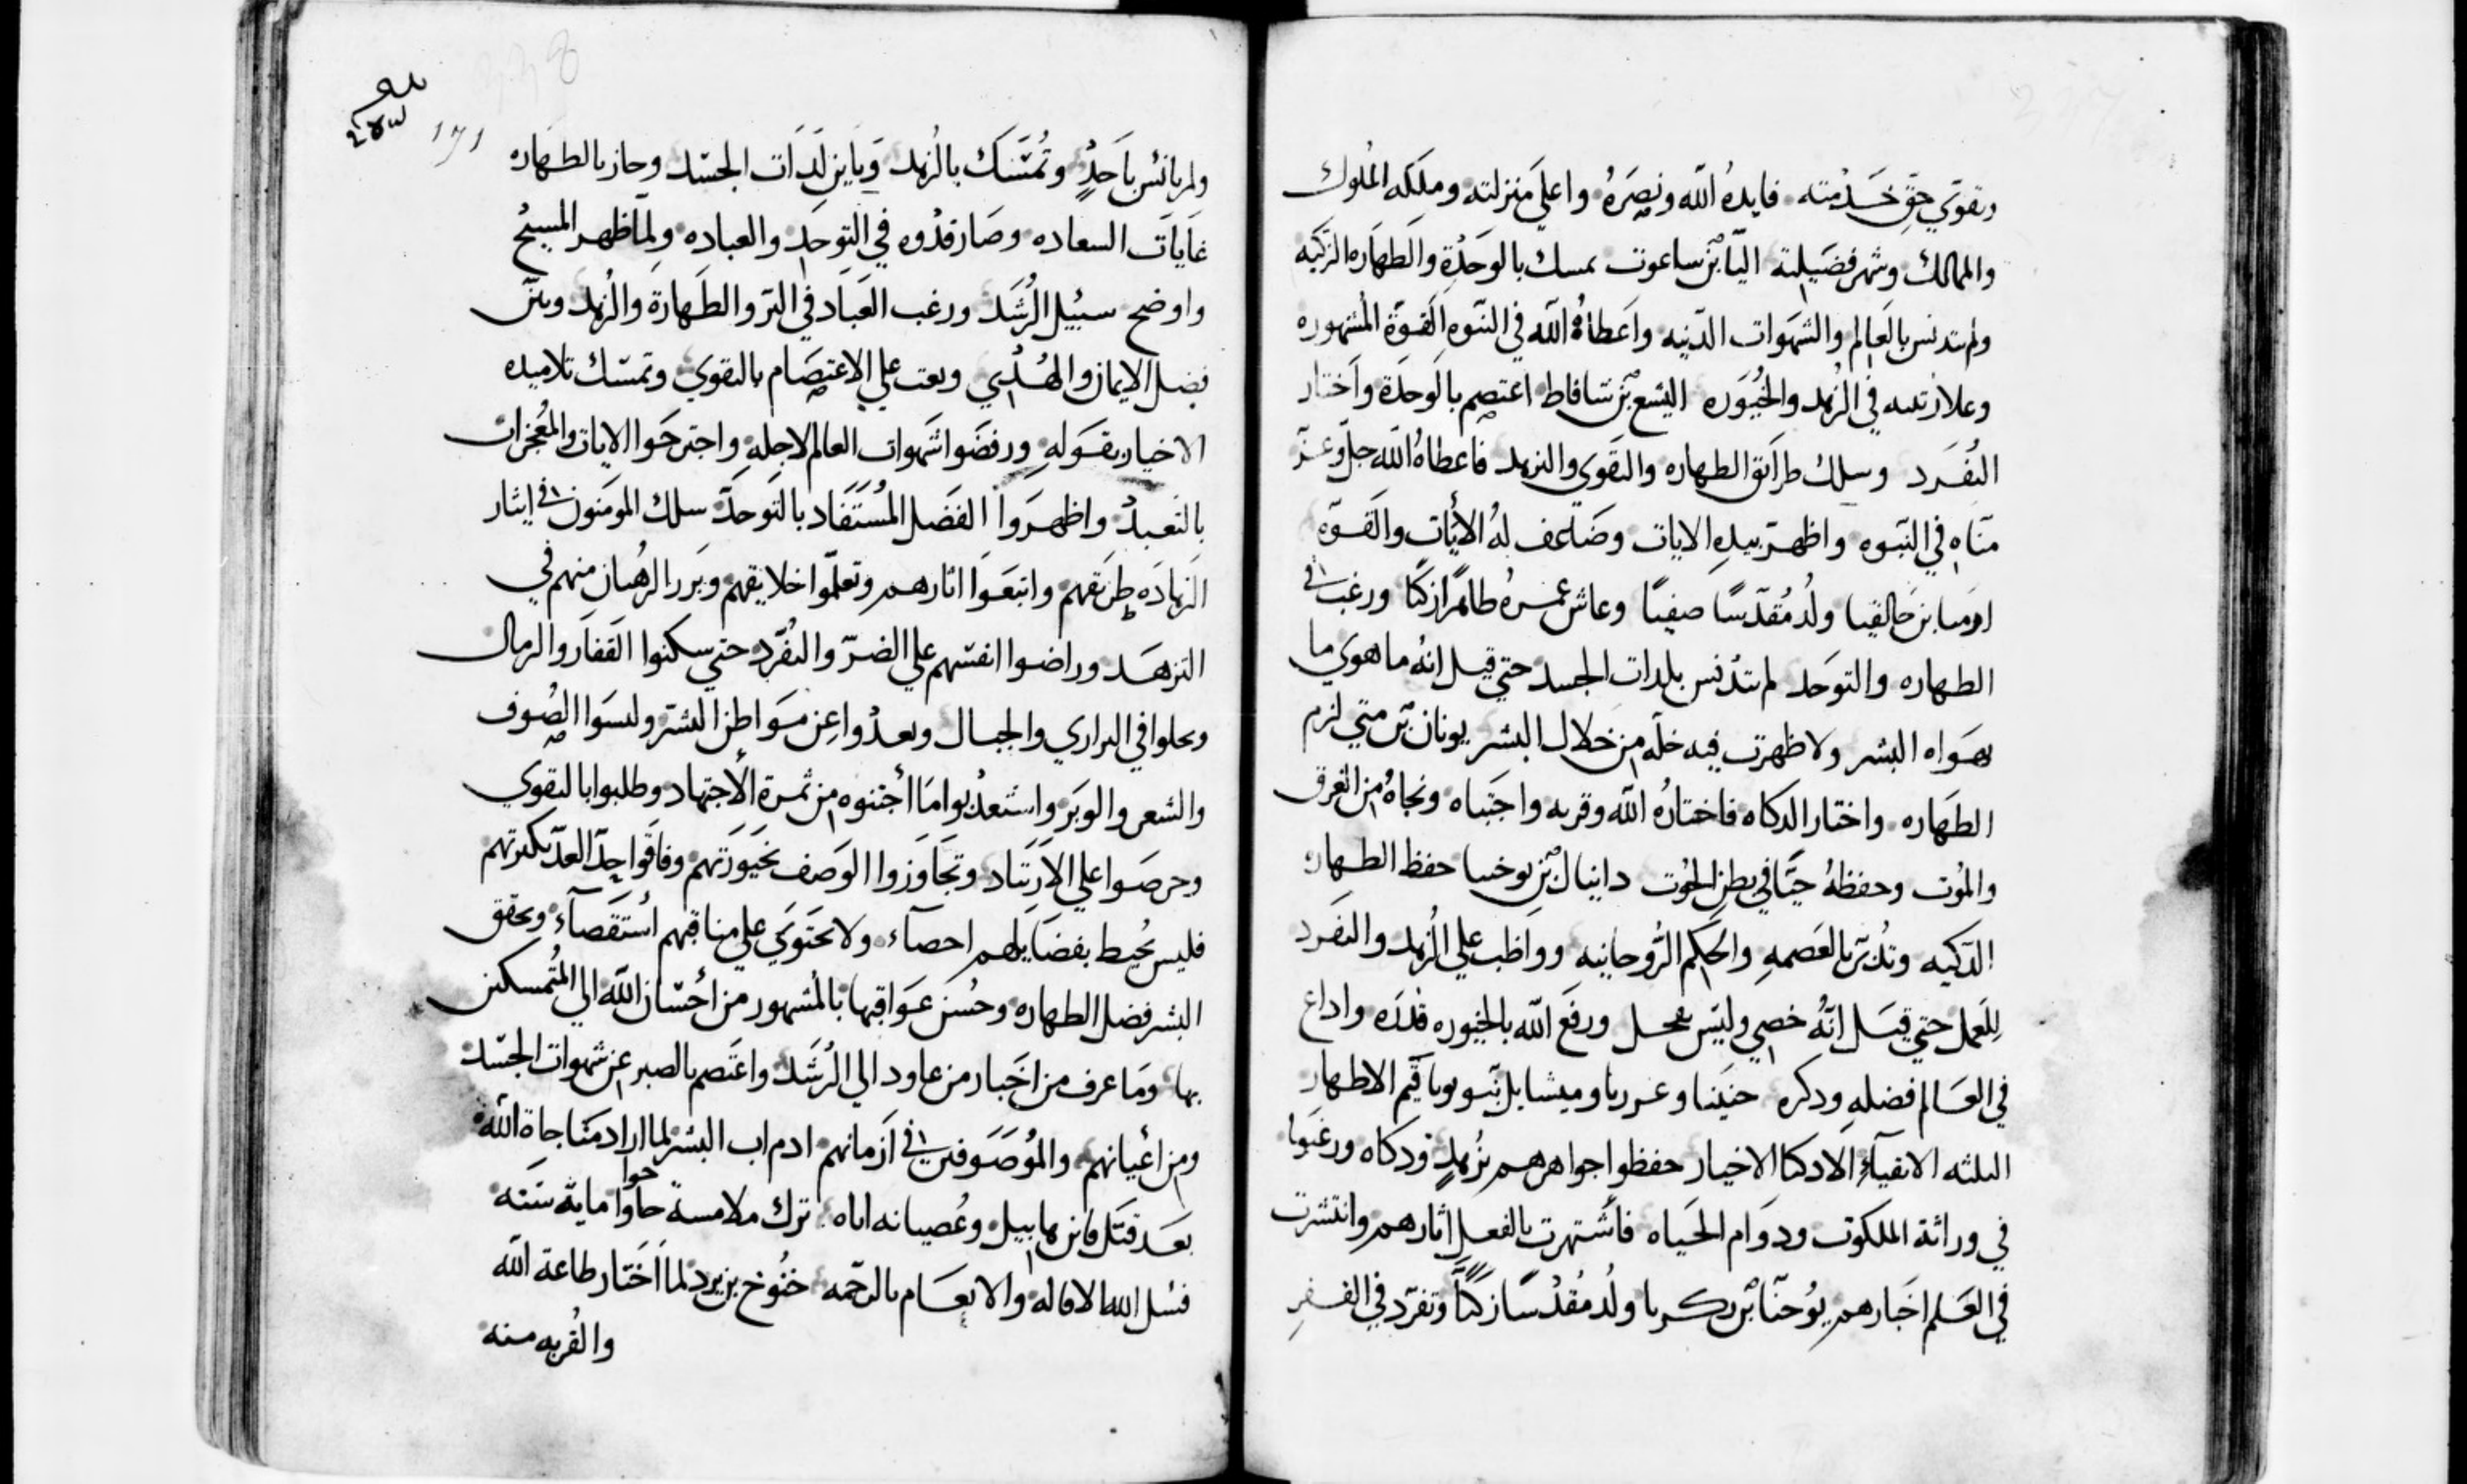 وتقوي حق خدمته فايده الله ونصره واعلي منزلته وملكه الملوك
والممالك وشهر فضيلته اليا بن ساعوت تمسك بالوحدة والطهاره الزكيه
ولم يتدنس بالعالم والشهوات الدنيه واعطاه الله في النبوه القوة المشهوره
وعلا رتبته في الزهد والخيوره اليشع بن شافاط اعتصم بالوحدة واختار
التفرد وسلك طرايق الطهاره والتقوي والزهد فاعطاه الله جل وعز
مناه في النبوه واظهر بيده الايات وضاعف له الايات والقوه
ارميا بن حالقيا ولد مقدسا صفيا وعاش عمره طاهرا زكيا ورغب في
الطهاره والتوحد لم يتدنس بلدات الجسد حتي قيل انه ما هوي ما
يهواه البشر ولا ظهرت فيه خله من خلال البشر يونان بن متي لزم
الطهاره واختار الدكاه فاختاره الله وقربه واجتباه ونجاه من الغرق
والموت وحفظه حيا في بطن الحوت دانيال بن يوخيا حفظ الطهاره
الدكيه وتدثر بالعصمه والحكم الروحانيه وواظب علي الزهد والتفرد
للعمل حتي قيل انه خصي وليس بفحل ورفع الله بالخيوره قدره واداع
في العالم فضله ودكره حنينا وعزريا وميشايل بنو يوياقيم الاطهار
الثلثه الاتقياء الادكيا الاخيار حفظوا جواهرهم بزهد ودكاه ورغبوا
في وراثة الملكوت ودوام الحياه فاشتهرت بالفعل اثارهم وانتشرت
في العلم اخبارهم يوحنا بن زكريا ولد مقدسا زكيا وتفرد في القفر
١٧١
ولم يانس باحد وتمسك بالزهد وباين لدات الجسد وحاز بالطهاره
غايات السعاده وصار قدوه في التوحد والعباده ولما ظهر المسيح
واوضح سبيل الرشد ورغب العباد في البر والطهارة والزهد وبين
فضل الايمان والهدي وبعت علي الاعتصام بالتقوي وتمسك تلاميده
الاخيار بقوله ورفضوا شهوات العالم لاجله واجترحوا الايات والمعجزات
بالتعبد واظهروا الفضل المستفاد بالتوحد سلك المومنون في ايثار
الزهاده طريقهم واتبعوا اثارهم وتعلموا خلايقهم وبرز الرهبان منهم في
التزهد وراضوا انفسهم علي الضر والتفرد حتي سكنوا القفار والرمال
وتخلوا في البراري والجبال وبعدوا عن مواطن البشر ولبسوا الصوف
والشعر والوبر واستعدبوا ما اجتنوه من ثمرة الاجتهاد وطلبوا بالتقوي
وحرصوا علي الارتياد وتجاوزوا الوصف بخيورتهم وفاقوا حد العد بكثرتهم
فليس يحيط بفضايلهم احصاء ولا يحتوي علي مناقبهم استقصاء وتحقق
البشر فضل الطهاره وحسن عواقبها بالمشهور من احسان الله الي المتمسكين
بها وما عرف من اخبار من عاود الي الرشد واعتصم بالصبر عن شهوات الجسد
ومن اعيانهم والموصوفين في ازمانهم ادم اب البشر لما اراد مناجاة الله
بعد قتل قاين هابيل وعصيانه اياه ترك ملامسة حاوا حوا مايه سنه
فسل الله الاقاله والانعام بالرحمه خنوخ بن يرد لما اختار طاعة الله
والقربه منه